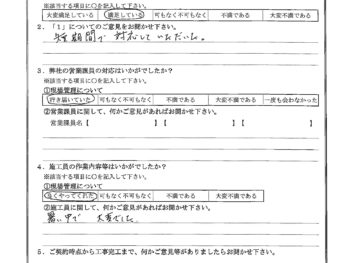 ※該当する項目に○を記入して下さい。
大変満足している 満足している 可もなく不可もなく 不満である 大変不満である
２．「１」についてのご意見をお聞かせ下さい。
短期間で 対応していただいた。
３．弊社の営業課員の対応はいかがでしたか？
※該当する項目に○を記入して下さい。
①現場管理について
行き届いていた 可もなく不可もなく 不満である 大変不満である 一度も会わなかった
②営業課員に関して、何かご意見があればお聞かせ下さい。
営業課員名【 】【 】
４．施工員の作業内容等はいかがでしたか？
※該当する項目に○を記入して下さい。
①現場管理について
良くやってくれた 可もなく不可もなく 不満である 大変不満である
②施工員に関して、何かご意見があればお聞かせ下さい。
暑い中で 大変でした。
５．ご契約時点から工事完工まで、何かご意見等がありましたらお聞かせ下さい。